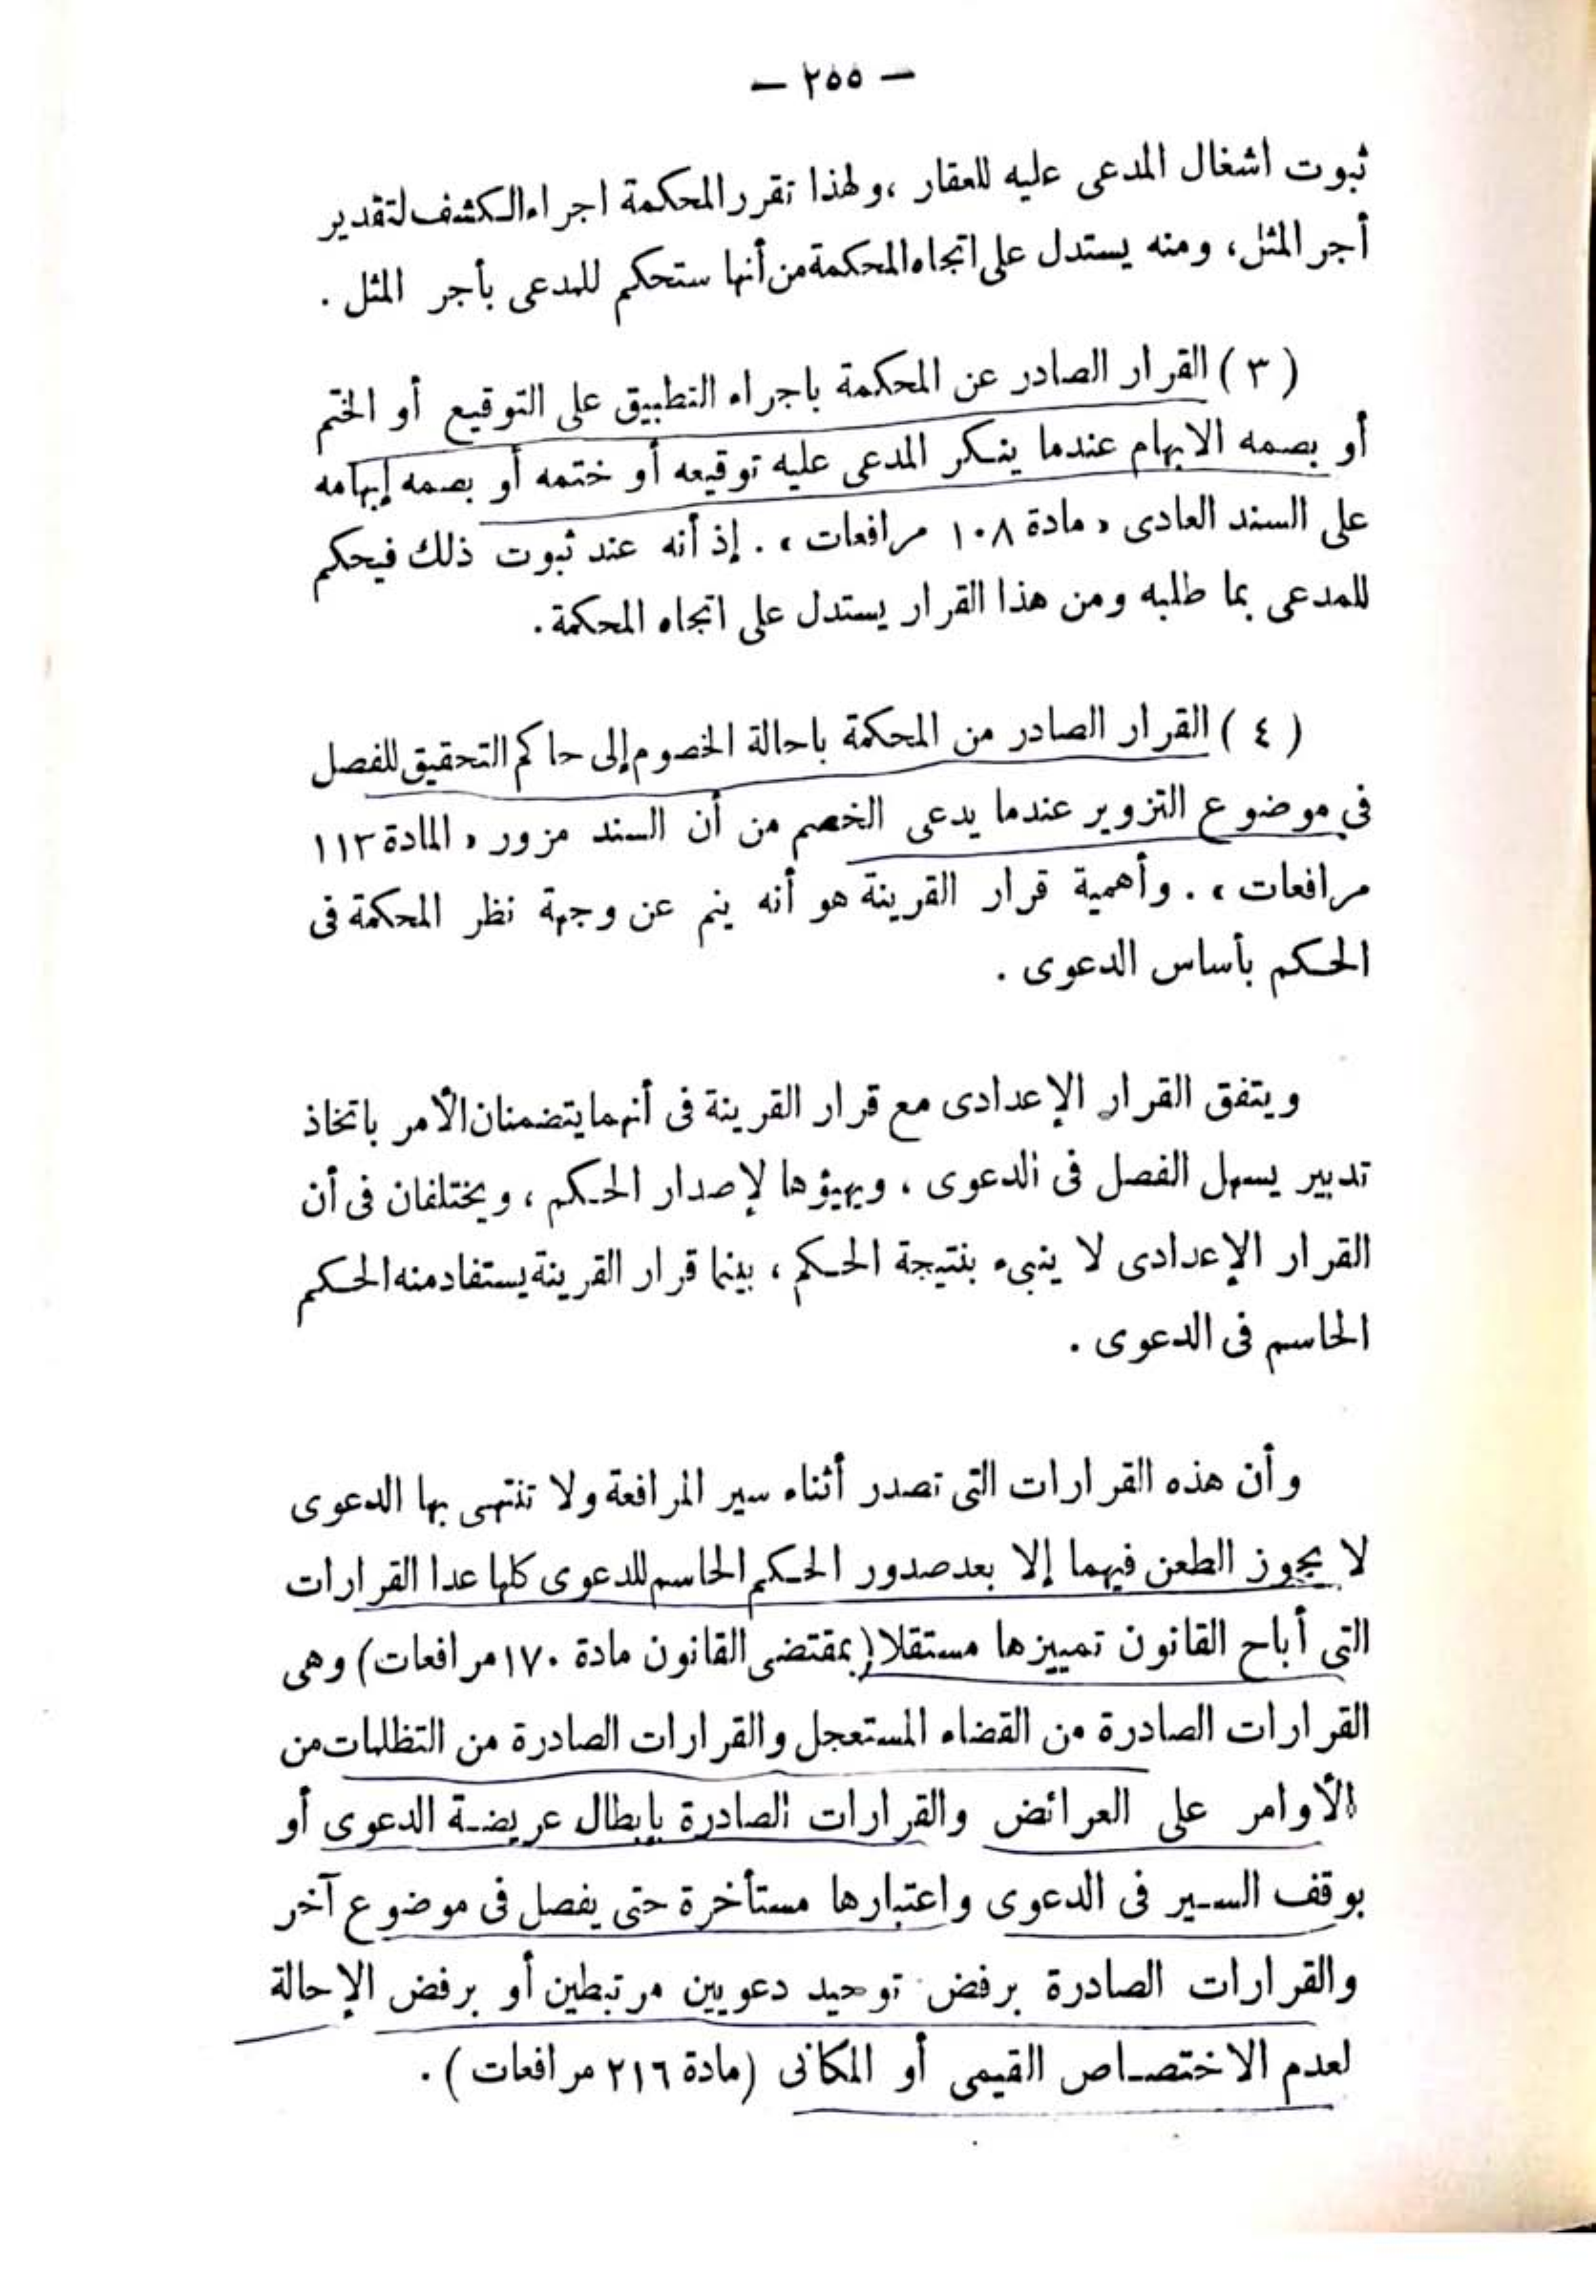 — ٢٥٥ —
ثبوت اشغال المدعى عليه للعقار ، ولهذا تقرر المحكمة اجراء الكشف لتقدير
أجر المثل ، ومنه يستدل على اتجاه المحكمة من أنها ستحكم للمدعى بأجر المثل .
( ٣ ) القرار الصادر عن المحكمة باجراء التطبيق على التوقيع أو الختم
أو بصمه الابهام عندما ينكر المدعى عليه توقيعه أو ختمه أو بصمه إبهامه
على السند العادى « مادة ١٠٨ مرافعات » . إذ أنه عند ثبوت ذلك فيحكم
للمدعى بما طلبه ومن هذا القرار يستدل على اتجاه المحكمة .
( ٤ ) القرار الصادر من المحكمة باحالة الخصوم إلى حاكم التحقيق للفصل
فى موضوع التزوير عندما يدعى الخصم من أن السند مزور « المادة ١١٣
مرافعات » . وأهمية قرار القرينة هو أنه ينم عن وجهة نظر المحكمة فى
الحكم بأساس الدعوى .
ويتفق القرار الإعدادى مع قرار القرينة فى أنهما يتضمنان الأمر باتخاذ
تدبير يسهل الفصل فى الدعوى ، ويهيؤها لإصدار الحكم ، ويختلفان فى أن
القرار الإعدادى لا ينبىء بنتيجة الحكم ، بينما قرار القرينة يستفاد منه الحكم
الحاسم فى الدعوى .
وأن هذه القرارات التى تصدر أثناء سير المرافعة ولا تنتهى بها الدعوى
لا يجوز الطعن فيهما إلا بعد صدور الحكم الحاسم للدعوى كلها عدا القرارات
التى أباح القانون تمييزها مستقلا ( بمقتضى القانون مادة ١٧٠ مرافعات ) وهى
القرارات الصادرة من القضاء المستعجل والقرارات الصادرة من التظلمات من
الأوامر على العرائض والقرارات الصادرة بإبطال عريضة الدعوى أو
بوقف السير فى الدعوى واعتبارها مستأخرة حتى يفصل فى موضوع آخر
والقرارات الصادرة برفض توحيد دعويين مرتبطين أو برفض الإحالة
لعدم الاختصاص القيمى أو المكانى ( مادة ٢١٦ مرافعات ) .